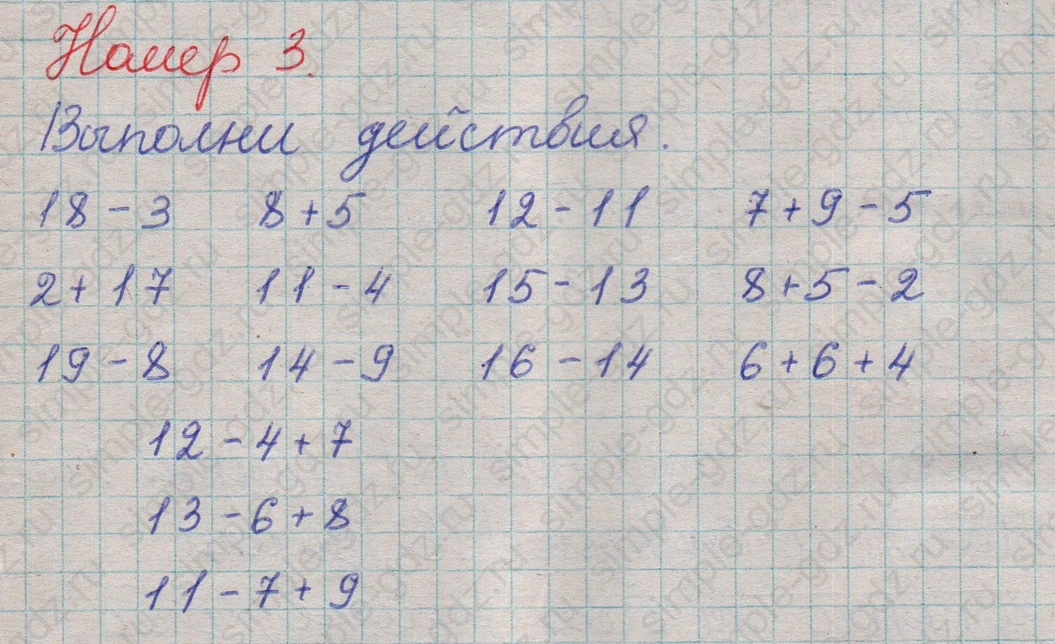 Номер 3.
Выполни действия.
18 - 3 8 + 5 12 - 11 7 + 9 - 5
2 + 17 11 - 4 15 - 13 8 + 5 - 2
19 - 8 14 - 9 16 - 14 6 + 6 + 4
12 - 4 + 7
13 - 6 + 8
11 - 7 + 9
simple-gdz.ru